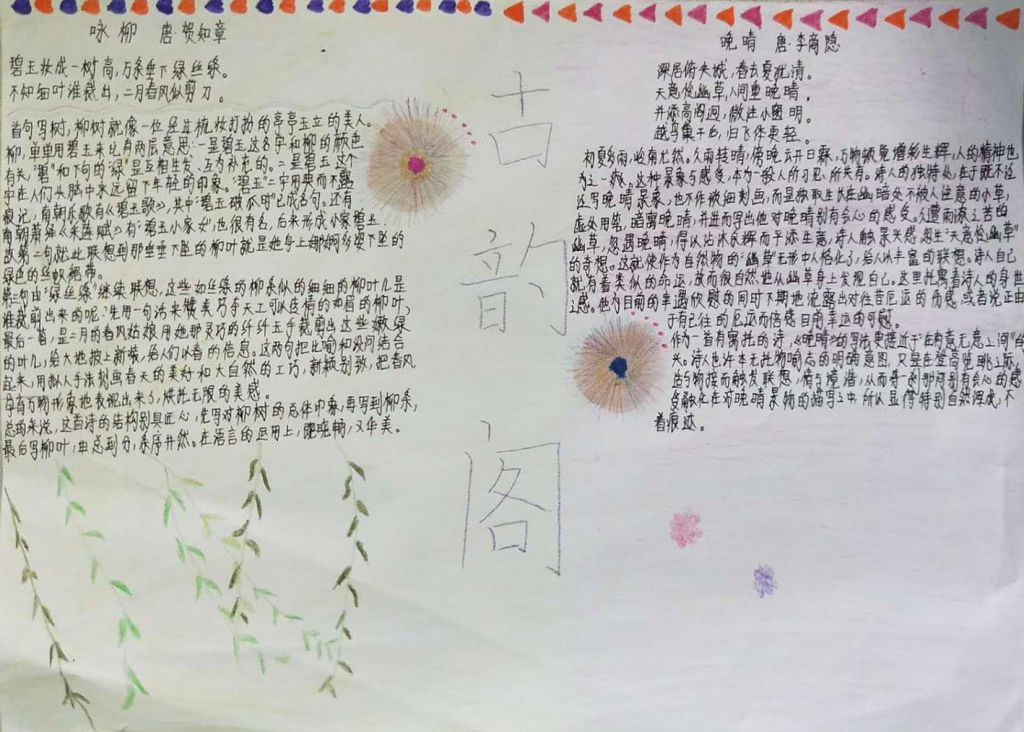 咏柳 唐·贺知章
碧玉妆成一树高,万条垂下绿丝绦。
不知细叶谁裁出,二月春风似剪刀。
首句写树,柳树就像一位经过梳妆打扮的亭亭玉立的美人。
柳,单单用碧玉来比有两层意思:一是碧玉这名字和柳的颜色
有关,"碧"和下句的"绿"是互相生发、互为补充的。二是碧玉这个
字在人们头脑中永远留下年轻的印象。"碧玉"二字用典而不露
痕迹,南朝乐府有《碧玉歌》,其中"碧玉破瓜时"已成名句。还有
南朝萧绎《采莲赋》有"碧玉小家女",也很有名,后来形成"小家碧玉
故第二句就此联想到那垂垂下坠的柳叶就是她身上婀娜多姿下坠的
绿色的丝织裙带。
第三句由"绿丝绦"继续联想,这些如丝绦的柳条似的细细的柳叶儿是
谁裁剪出来的呢?先用一句话来赞美巧夺天工可以传情的如眉的柳叶,
最后一答,是二月的春风姑娘用她那灵巧的纤纤玉手裁剪出这些嫩绿
的叶儿,给大地披上新装,给人们以春的信息。这两句把比喻和设问结合
起来,用拟人手法刻画春天的美好和大自然的工巧,新颖别致,把春风
孕育万物形象地表现出来了,烘托无限的美感
总的来说,这首诗的结构别具匠心,先写对柳树的总体印象,再写到柳条,
最后写柳叶,由总到分,条序井然。在语言的运用上,既晓畅,又华美。
古
韵
阁
晚晴 唐·李商隐
深居俯夹城,春去夏犹清。
天意怜幽草,人间重晚晴。
并添高阁迥,微注小窗明。
越鸟巢干后,归飞体更轻。
初夏多雨,岭南尤然。久雨转晴,傍晚云开日霁,万物顿觉增彩生辉,人的精神也
为之一爽。这种景象与感受,本为一般人所习见、所共有。诗人的独特处,在于既不泛
泛写晚晴景象,也不作琐细刻画,而是独取生长在幽暗处不被人注意的小草,
虚处用笔,暗寓晚晴,并进而写出他对晚晴别有会心的感受。久遭雨潦之苦的
幽草,忽遇晚晴,得以沾沐余辉而平添生意,诗人触景兴感,忽生"天意怜幽草"
的奇想。这就使作为自然物的"幽草"无形中人格化了,给人以丰富的联想。诗人自己
就有着类似的命运,故而很自然地从幽草身上发现自己。这里托寓着诗人的身世
之感。他为目前的幸遇欣慰的同时不期地流露出对往昔厄运的伤感,或者说正由
于有已往的厄运而倍感目前幸运的可慰。
作为一首有寓托的诗,《晚晴》的写法更接近于"在有意无意之间"的
兴。诗人也许本无托物喻志的明确意图,只是在登高览眺之际,
适与物接而触发联想,情与境谐,从而将一刹那间别有会心的感
受融化在对晚晴景物的描写之中,所以显得特别自然浑成,不
着痕迹。